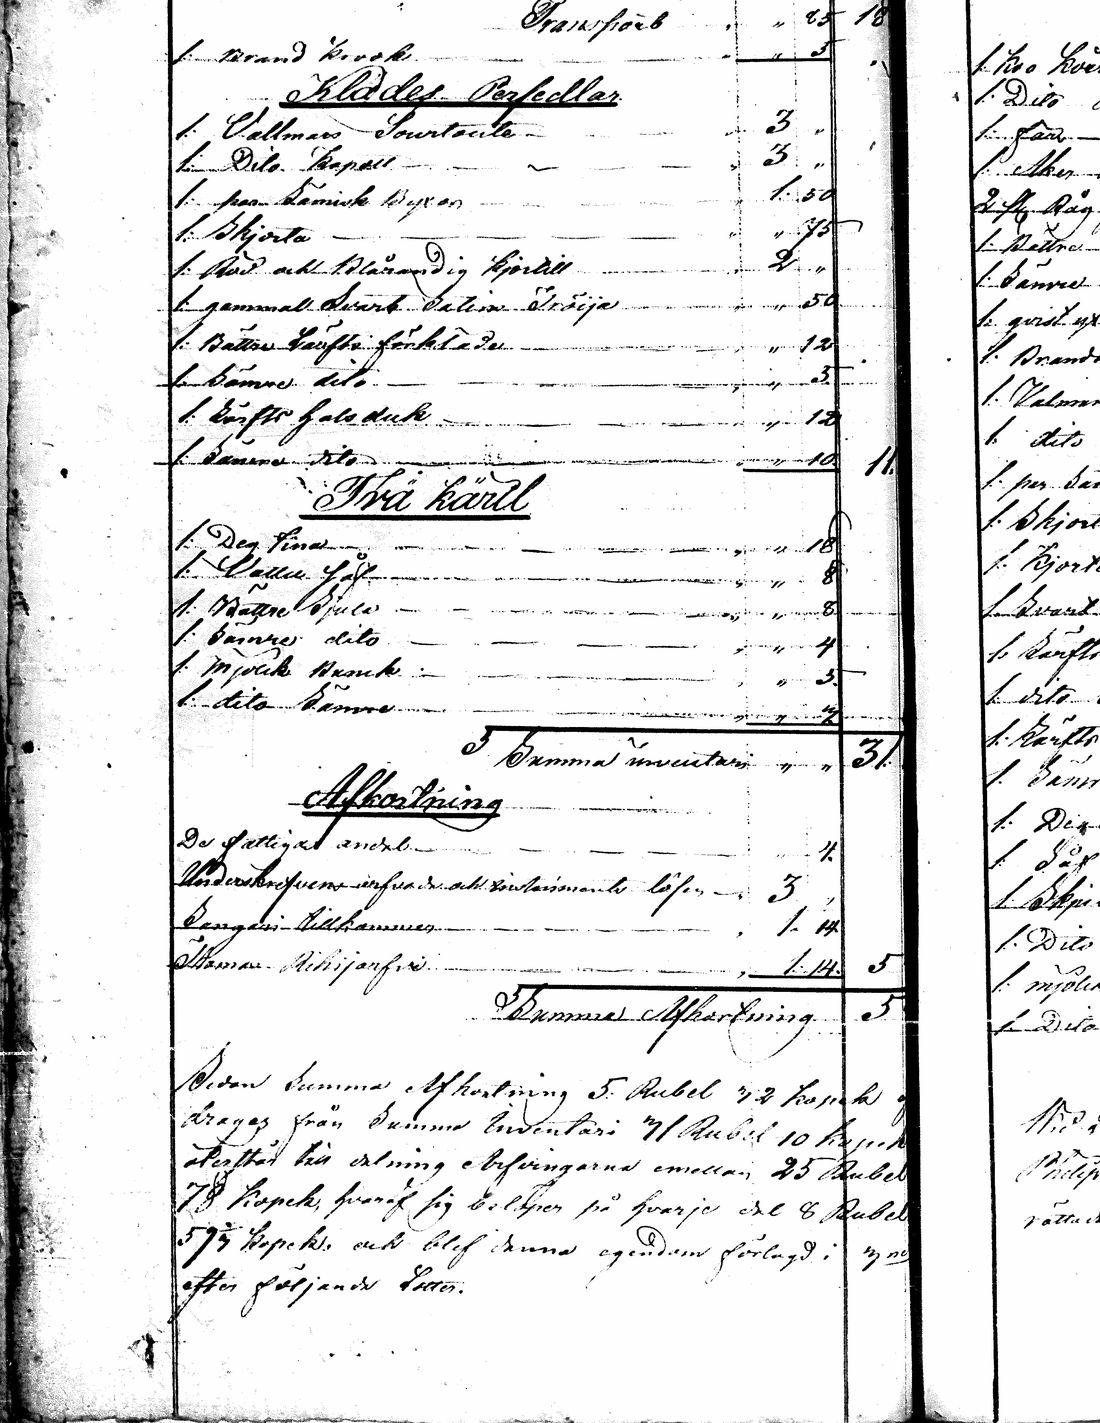 Transport " 85 18
1. Brand krook " 5
Klädes Persedlar
1. Vallmars Sourtoute 3 "
1. Dito Kapott 3 "
1. par Sämisk Byxor 1. 50
1. Skjorta " 75
1. Röd och Blårandig kjortill 2 "
1. gammal Svart Satin Tröija " 50
1. Bättre Lärfts förkläde " 12
1. Sämre dito " 5
1. Lärfts halsduk " 12
1. Sämre dito " 10 11.
Trä kärll
1. Deg tina " 18
1. Vatten Såf " 8
1. Bättre Stjula " 8
1. Sämre dito " 4
1. Mjölk Bunk " 3
1. dito Sämre " 2
Summa inventari " " 31.
Afkortning
De fattigas andel 4.
Underskrefvens arfvode och instruments lösen 3 "
Sangari tillkommer 1. 14
1. 14. 5
Summa Afkortning 5
Sedan Summa Afkortning 5. Rubel 32 kopek
drages från Summa Inventari 31 Rubel 10 kopek
återstår till delning Arfvingarna emellan 25 Rubel
78 kopek, hvaraf sig belöper på hvarje del 8 Rubel
59⅓ kopek. och blef denna egendom förlagd i 3ne
efter följande Lotter.
1. Dito
1.
1. Aker
2 st Råg
1. Bättre
1. Sämre
1. qvist yx
1. Brand
1. Valmar
1. dito
1. par Sä
1. Skjort
1. Kjort
1. Svart
1. Lärfts
1. dito
1. Lärfts
1. Säm
1. Deg
1. Såf
1.
1. Dito
1. Mjölk
1. Dito
Philip